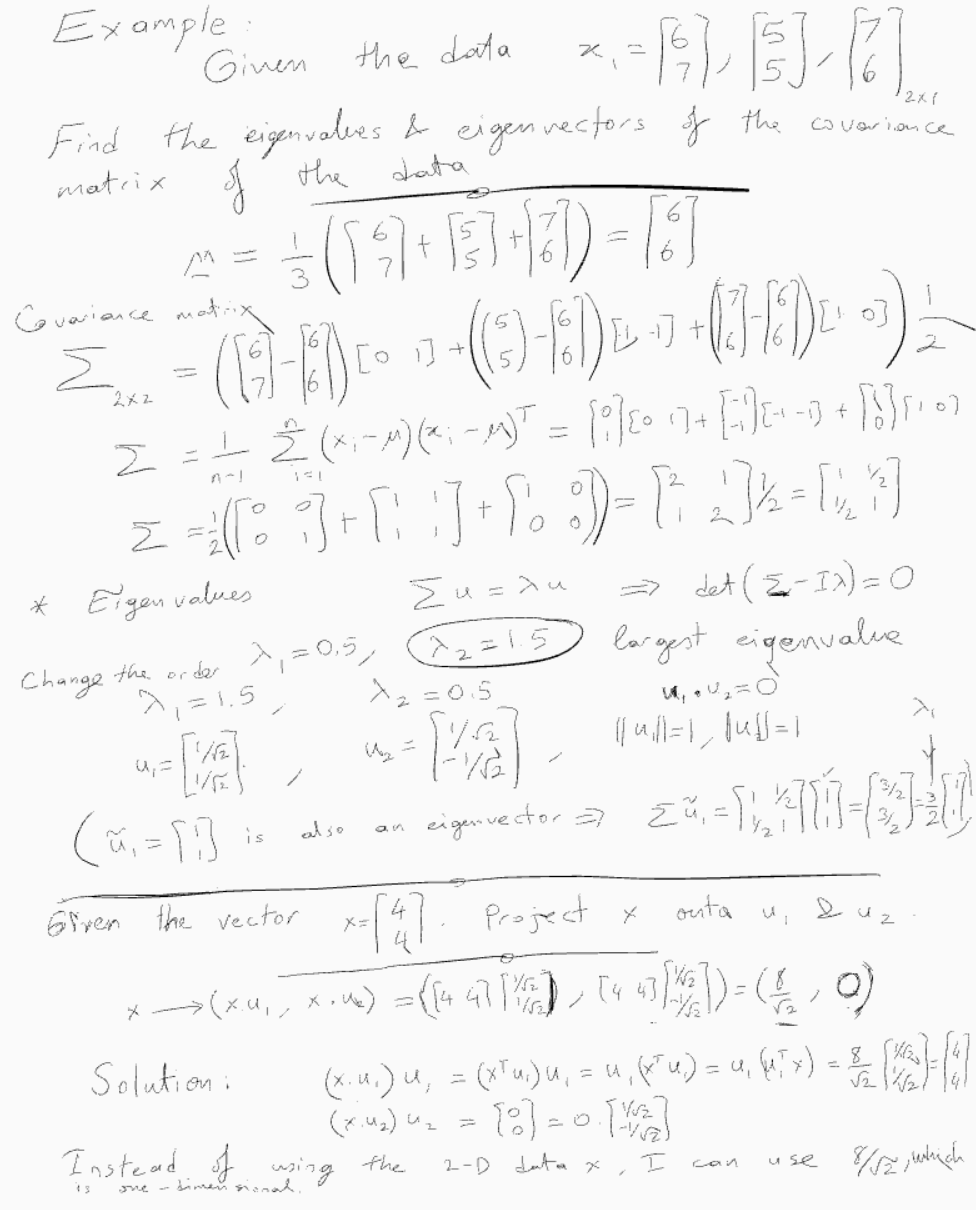 Example:
Given the data x₁ = [6 7], [5 5], [7 6]₂ₓ₁
Find the eigenvalues & eigenvectors of the covariance
matrix of the data
m = 1/3 ([6 7] + [5 5] + [7 6]) = [6 6]
Covariance matrix
Σ₂ₓ₂ = (([6 7] - [6 6]) [0 1] + ((5 5) - [6 6]) [-1 -1] + ([7 6] - [6 6]) [1 0]) 1/2
Σ = 1/(n-1) Σᵢ₌₁ⁿ (xᵢ - μ)(xᵢ - μ)ᵀ = [0 1][0 1] + [-1 -1][-1 -1] + [1 0][1 0]
Σ = 1/2 ([0 0; 0 1] + [1 1; 1 1] + [1 0; 0 0]) = [2 1; 1 2] 1/2 = [1 1/2; 1/2 1]
* Eigenvalues Σu = λu ⇒ det(Σ - Iλ) = 0
λ₁ = 0.5, λ₂ = 1.5 largest eigenvalue
Change the order
λ₁ = 1.5, λ₂ = 0.5 u₁ · u₂ = 0
u₁ = [1/√2 1/√2], u₂ = [1/√2 -1/√2], ||u₁|| = 1, ||u|| = 1 λ₁
(ũ₁ = [1 1] is also an eigenvector ⇒ Σũ₁ = [1 1/2; 1/2 1][1 1] = [3/2 3/2] = 3/2 [1 1])
Given the vector x = [4 4]. Project x onta u₁ & u₂.
x → (x.u₁, x.u₂) = ([4 4][1/√2 1/√2], [4 4][1/√2 -1/√2]) = (8/√2, 0)
Solution: (x.u₁)u₁ = (xᵀu₁)u₁ = u₁(xᵀu₁) = u₁(u₁ᵀx) = 8/√2 [1/√2 1/√2] = [4 4]
(x.u₂)u₂ = [0 0] = 0.[1/√2 -1/√2]
Instead of using the 2-D data x, I can use 8/√2, which
is one-dimensional.